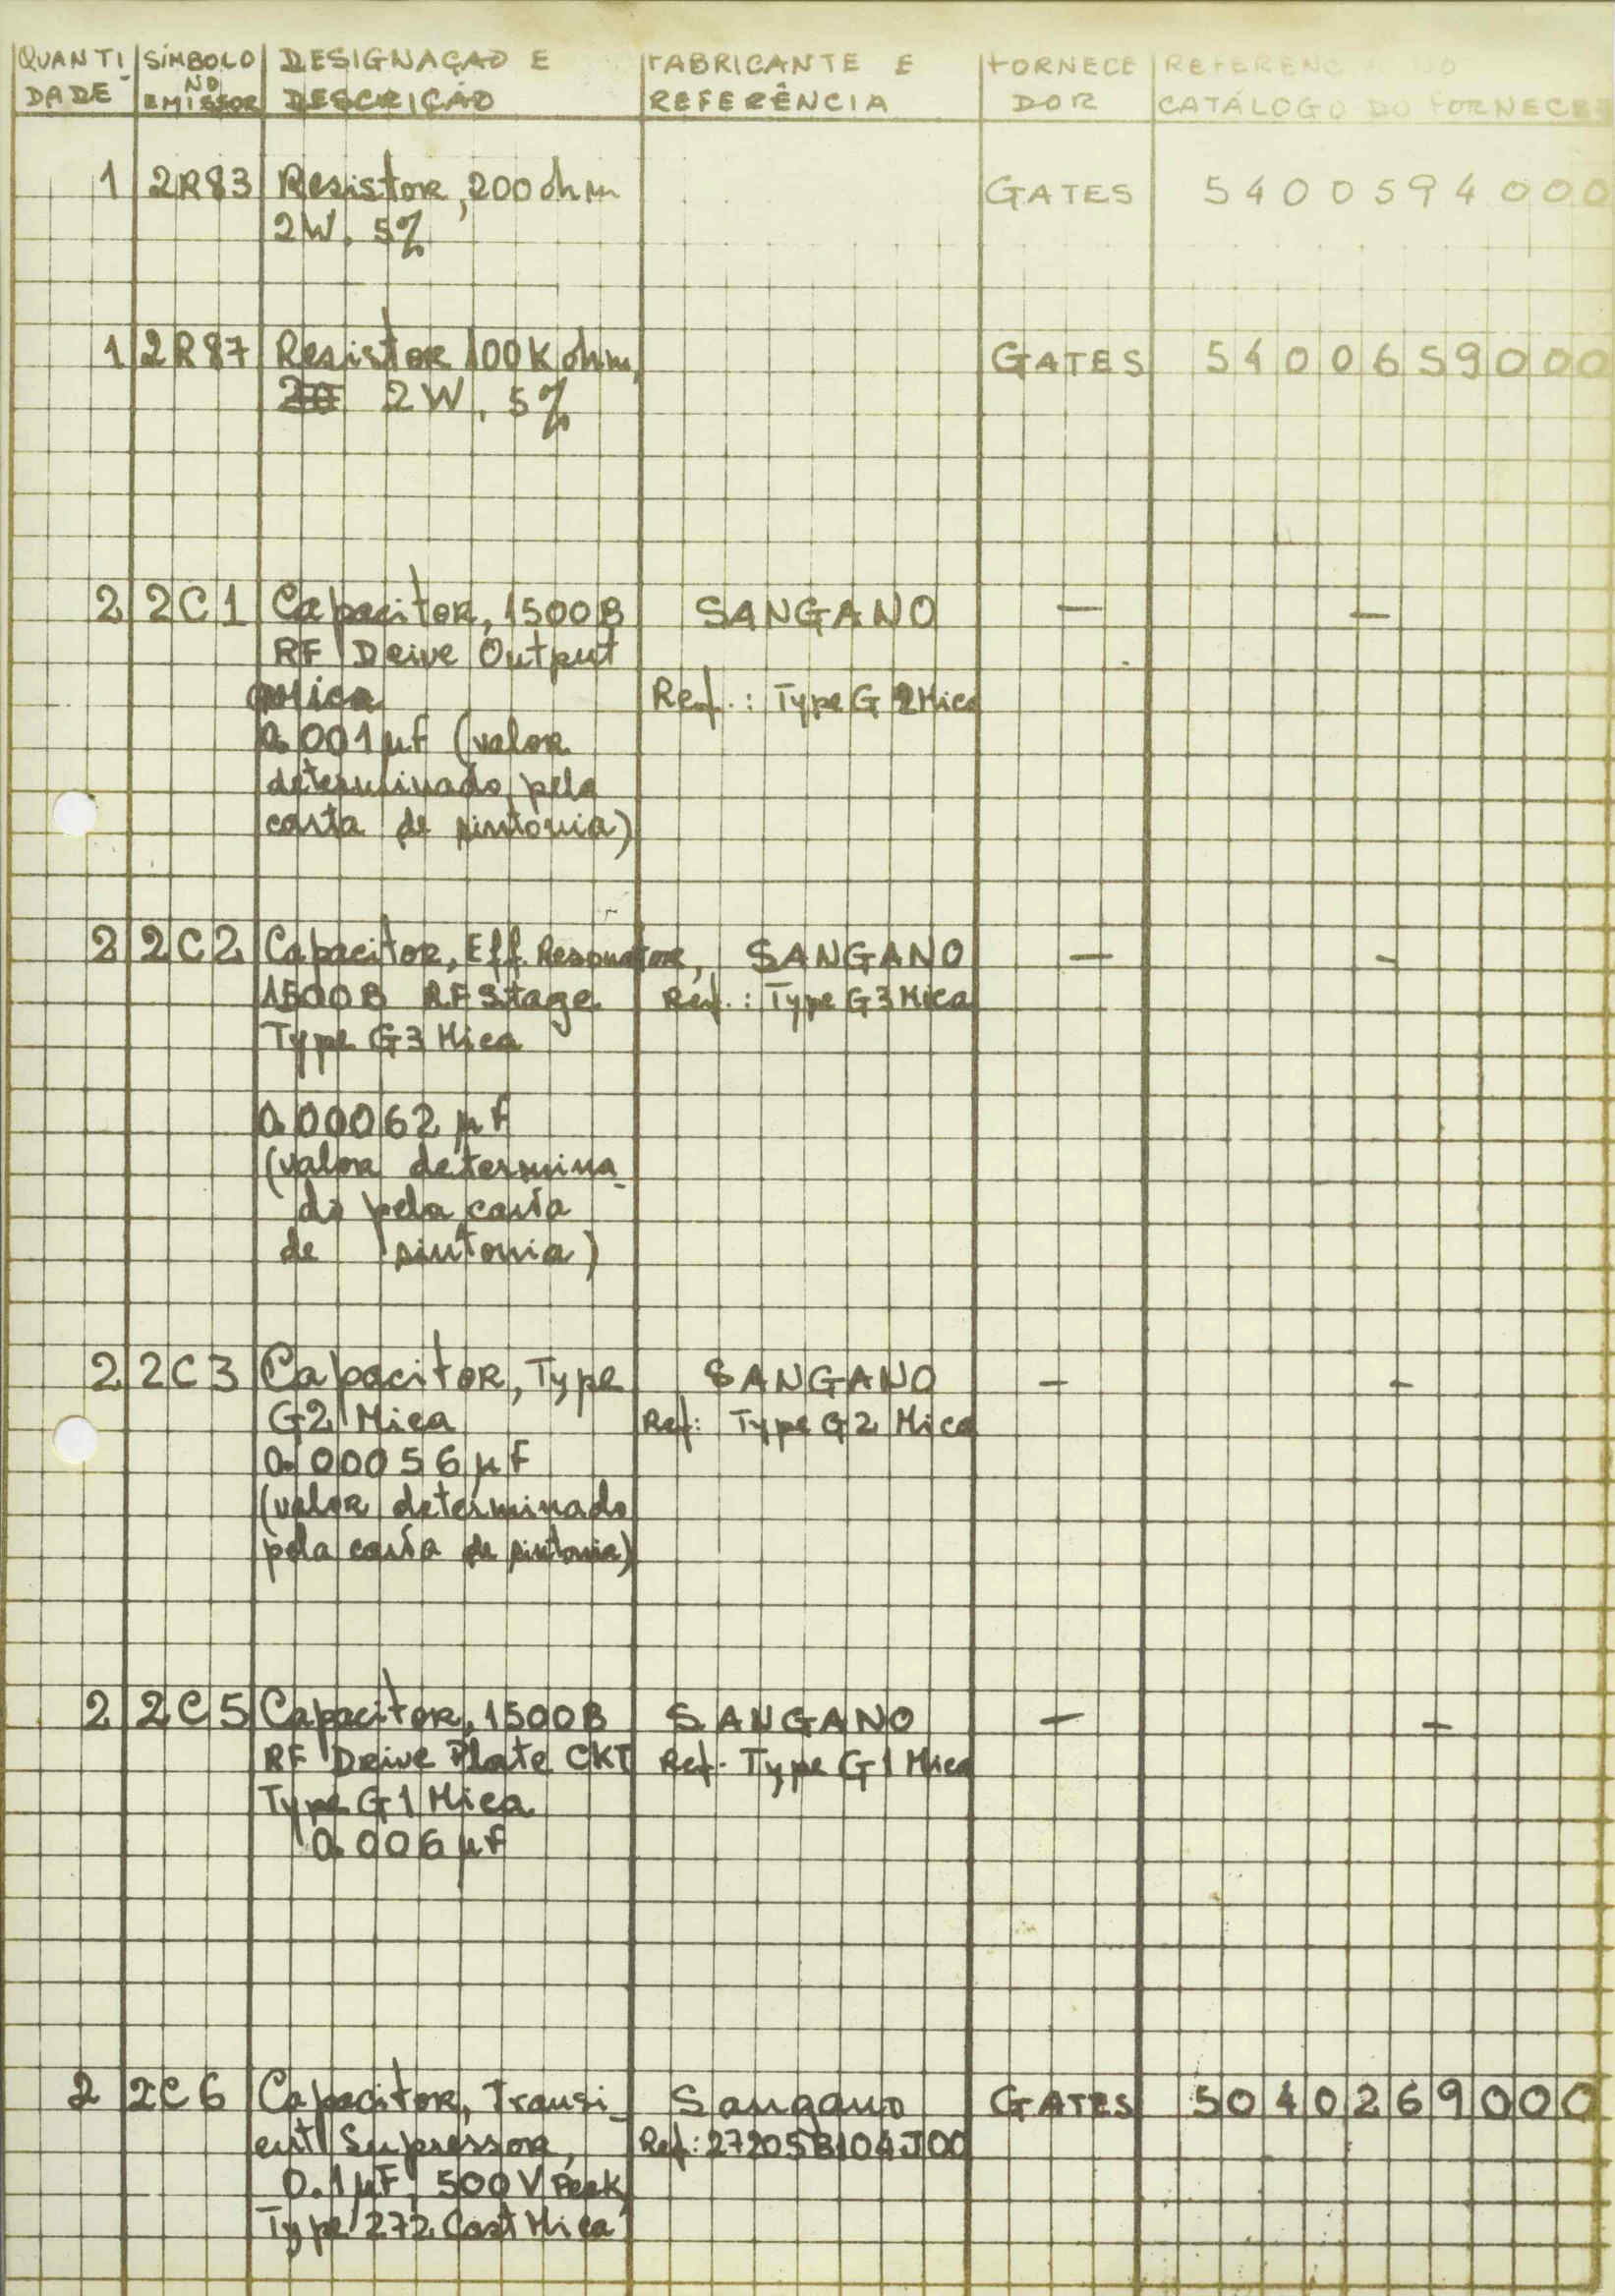 QUANTI- SÍMBOLO DESIGNAÇÃO E FABRICANTE E FORNECE
DADE NO EMISSOR DESCRIÇÃO REFERÊNCIA DOR CATÁLOGO DO FORNECE
1 2R83 Resistor, 200 ohm GATES 5400594000
2W, 5%
1 2R87 Resistor 100K ohm, GATES 5400659000
2W, 5%
2 2C1 Capacitor, 1500B SANGANO — —
RF Drive Output
Mica Ref.: Type G 2 Mica
0.001µF (valor
determinado pela
carta de sintonia)
2 2C2 Capacitor, Eff. Resonator, SANGANO — -
1500B RF Stage Ref.: Type G3 Mica
Type G3 Mica
0.00062 µF
(valor determina-
do pela carta
de sintonia)
2 2C3 Capacitor, Type SANGANO — -
G2 Mica Ref: Type G2 Mica
0.00056 µF
(valor determinado
pela carta de sintonia)
2 2C5 Capacitor, 1500B SANGANO — —
RF Drive Plate CKT Ref. Type G1 Mica
Type G1 Mica
0.006 µF
2 2C6 Capacitor, Transi- Sangano GATES 5040269000
ent Supressor, Ref: 27205B104J00
0.1µF, 500V Peak,
Type 272 Cast Mica